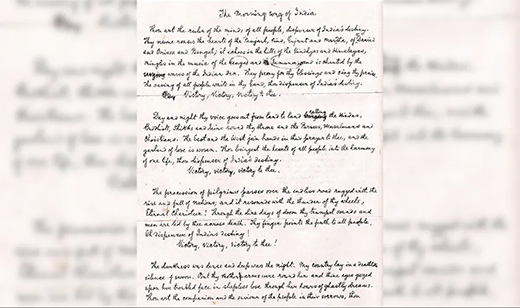 The Morning Song of India
Thou art the ruler of the minds of all people, dispenser of India's destiny.
Thy name rouses the hearts of the Panjab, Sind, Gujrat and Maratha, of Dravid
and Orissa and Bengal; it echoes in the hills of the Vindhyas and Himalayas,
mingles in the music of the Ganges and Jumna and is chanted by the
waves of the Indian Sea. They pray for thy blessings and sing thy praise,
The saving of all people waits in thy hand, thou dispenser of India's destiny.
Victory, Victory, Victory to thee.
Day and night thy voice goes out from land to land calling the Hindus,
Budhists, Sikhs and Jains round thy throne and the Parsees, Musulmans and
Christians. The East and the West join hands in their prayer to thee, and the
garland of love is woven. Thou bringest the hearts of all people into the harmony
of one life, thou dispenser of India's destiny.
Victory, victory, victory to thee.
The procession of pilgrims passes over the endless road rugged with the
rise and fall of nations; and it resounds with the thunder of thy wheels,
Eternal Charioteer! Through the dire days of doom thy trumpet sounds and
men are led by thee across death. Thy finger points the path to all people,
Oh dispenser of India's destiny!
Victory, victory, victory to thee!
The darkness was dense and deep was the night. My country lay in a deathlike
silence of swoon. But thy mother arms were round her and thine eyes gazed
upon her troubled face in sleepless love through her hours of ghastly dreams.
Thou art the companion and the saviour of the people in their sorrows, thou